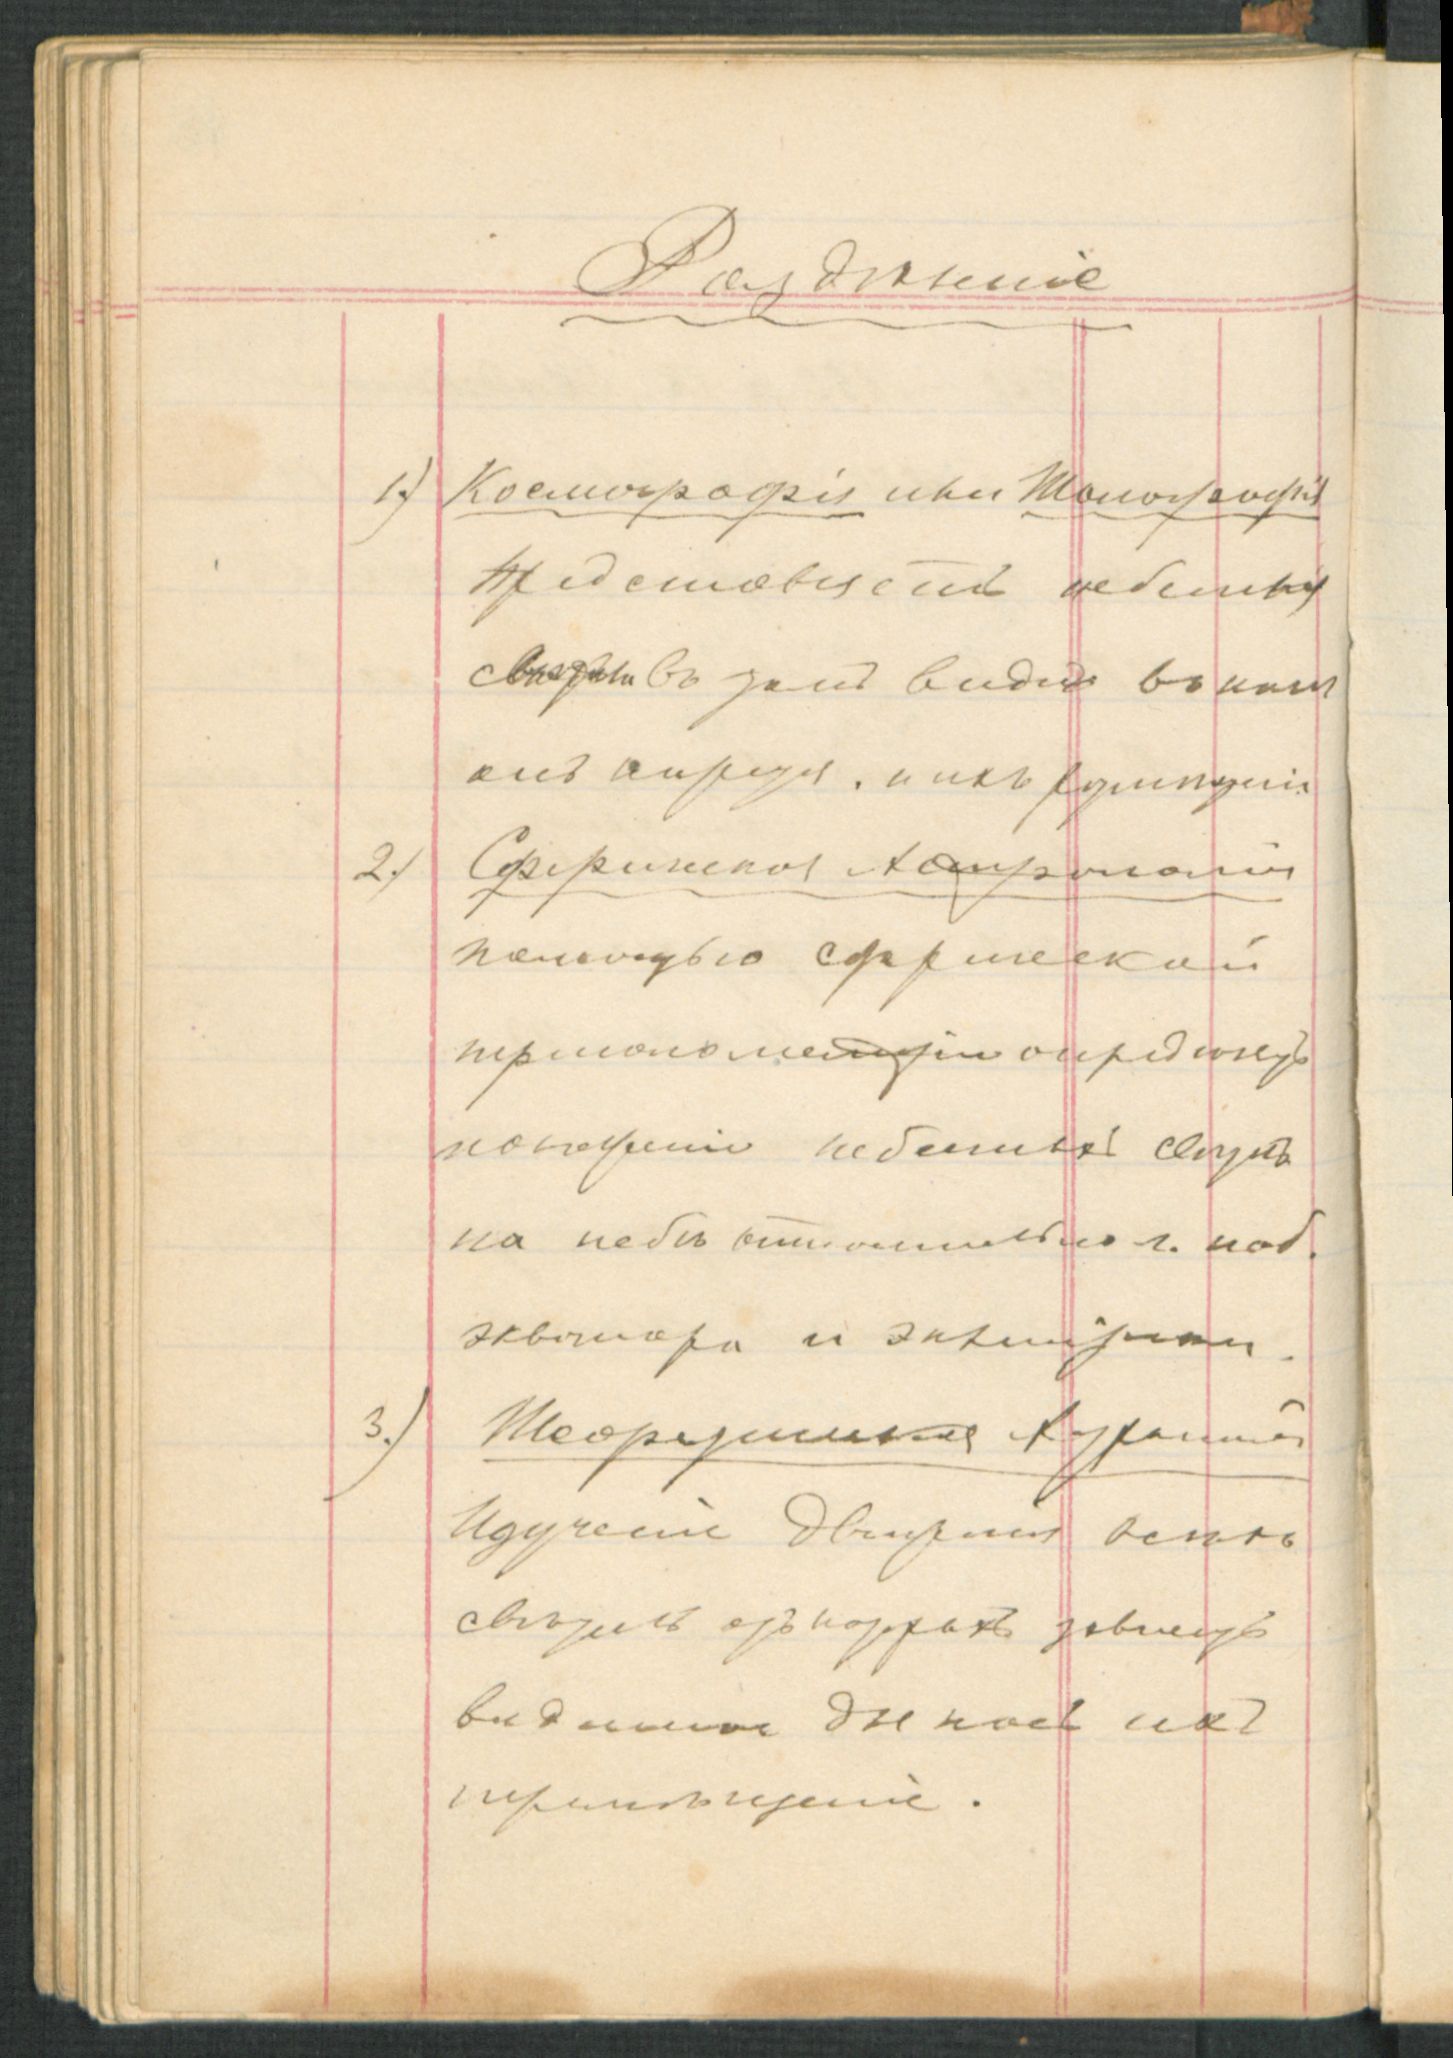 Раздѣленіе
1.) Космографія или Топографія
представляетъ небесныя
въ томъ видѣ въ какомъ
онѣ и ихъ
2.) Сферическая Астрономія
помощью сферической
тригонометріи опредѣляетъ
положеніе небесныхъ свѣтилъ
на небѣ относительно
экватора и эклиптики.
3.) Теоретическая Астрономія
Изученіе движенія всѣхъ
свѣтилъ
видимое для насъ ихъ
перемѣщеніе.